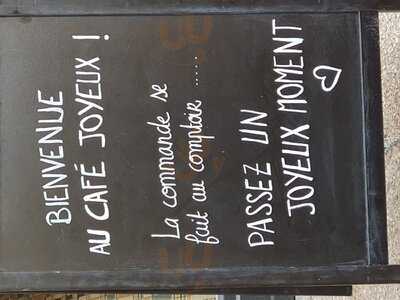 BIENVENUE
AU CAFÉ JOYEUX !
La commande se
fait au comptoir .....
PASSEZ UN
JOYEUX MOMENT